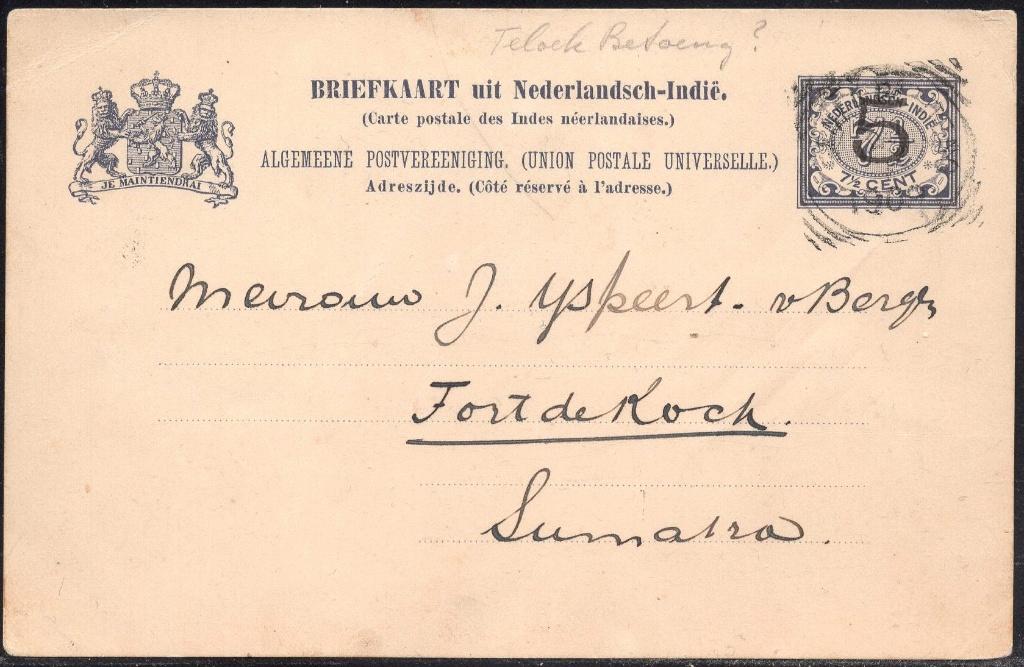 Telock Betoeng?
BRIEFKAART uit Nederlandsch-Indië.
(Carte postale des Indes néerlandaises.)
ALGEMEENE POSTVEREENIGING. (UNION POSTALE UNIVERSELLE.)
Adreszijde. (Côté réservé à l'adresse.)
JE MAINTIENDRAI
NEDERLANDSCH-INDIË
5
7½ CENT
Mevrouw J. Yspeert- v Bergen
Fort de Kock.
Sumatra.